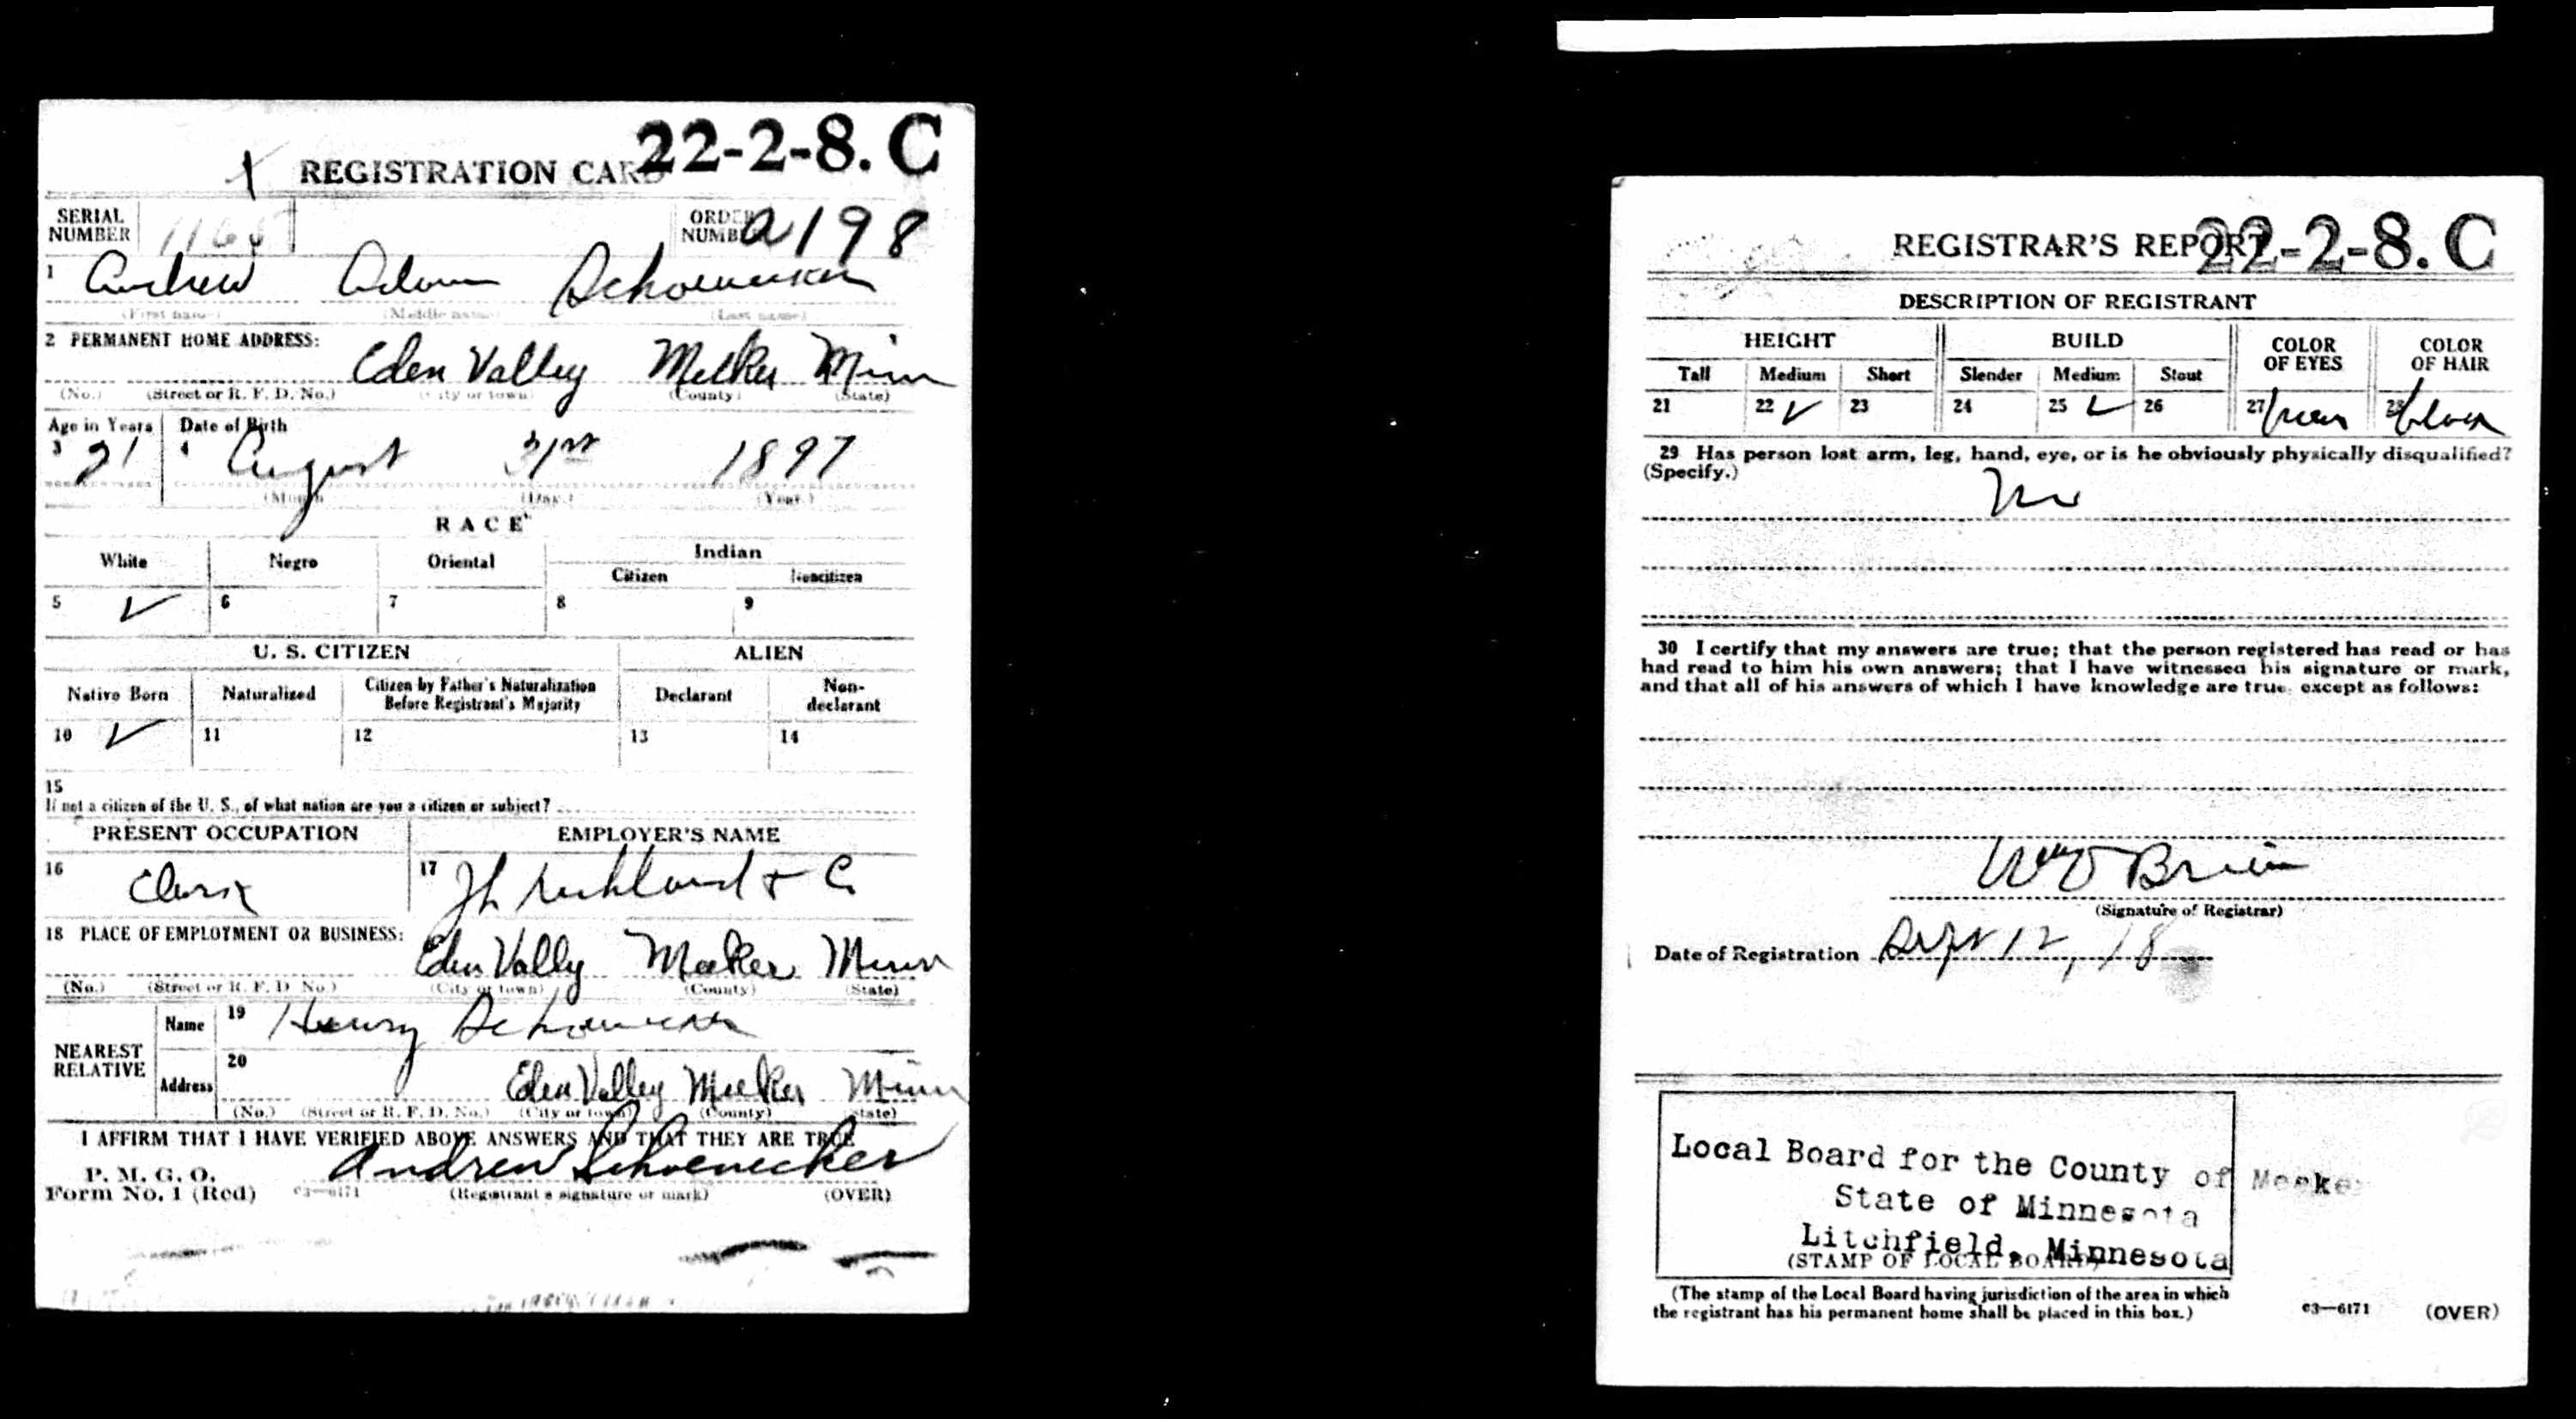 22-2-8. C
REGISTRATION CARD
SERIAL NUMBER ORDER NUMBER a198
1 Andrew Adam Schoenecker
(First name) (Middle name) (Last name)
2 PERMANENT HOME ADDRESS:
Eden Valley Meeker Minn
(No.) (Street or R. F. D. No.) (City or town) (County) (State)
Age in Years Date of Birth
3 21 4 August 31st 1897
(Month) (Day.) (Year.)
RACE
White Negro Oriental Indian
Citizen Noncitizen
5 ✓ 6 7 8 9
U. S. CITIZEN ALIEN
Native Born Naturalized Citizen by Father's Naturalization Before Registrant's Majority Declarant Non-declarant
10 ✓ 11 12 13 14
15
If not a citizen of the U. S., of what nation are you a citizen or subject?
PRESENT OCCUPATION EMPLOYER'S NAME
16 Clerk 17 & Co
18 PLACE OF EMPLOYMENT OR BUSINESS:
Eden Vally Meeker Minn
(No.) (Street or R. F. D. No.) (City or town) (County) (State)
NEAREST RELATIVE
Name 19 Henry Schoenecker
Address 20 Eden Valley Meeker Minn
(No.) (Street or R. F. D. No.) (City or town) (County) (State)
I AFFIRM THAT I HAVE VERIFIED ABOVE ANSWERS AND THAT THEY ARE TRUE
P. M. G. O.
Form No. 1 (Red) 03—6171
Andrew Schoenecker
(Registrant's signature or mark) (OVER)
22-2-8. C
REGISTRAR'S REPORT
DESCRIPTION OF REGISTRANT
HEIGHT BUILD COLOR OF EYES COLOR OF HAIR
Tall Medium Short Slender Medium Stout
21 22 ✓ 23 24 25 ✓ 26 27 28 black
29 Has person lost arm, leg, hand, eye, or is he obviously physically disqualified?
(Specify.)
No
30 I certify that my answers are true; that the person registered has read or has
had read to him his own answers; that I have witnessed his signature or mark,
and that all of his answers of which I have knowledge are true, except as follows:
Wm O Brien
(Signature of Registrar)
Date of Registration Sept 12, 18
Local Board for the County of Meeker
State of Minnesota
Litchfield, Minnesota
(STAMP OF LOCAL BOARD)
(The stamp of the Local Board having jurisdiction of the area in which
the registrant has his permanent home shall be placed in this box.)
03—6171 (OVER)